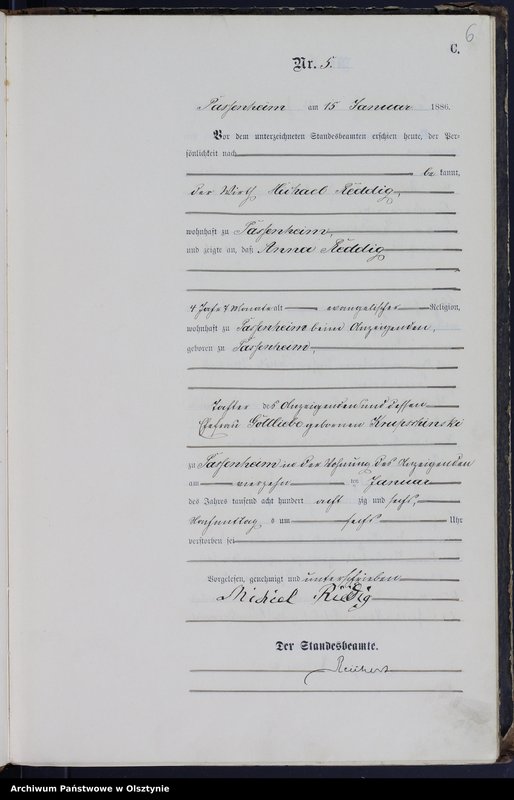 6
C.
Nr. 5.
Passenheim am 15 Januar 1886.
Vor dem unterzeichneten Standesbeamten erschien heute, der Per-
sönlichkeit nach
be kannt,
der Wirth Michael Reddig,
wohnhaft zu Passenheim,
und zeigte an, daß Anna Reddig
4 Jahr 4 Monate alt evangelischer Religion,
wohnhaft zu Passenheim beim Anzeigenden,
geboren zu Passenheim,
Tochter des Anzeigenden und dessen
Ehefrau Gottliebe gebornen
zu Passenheim in der Wohnung des Anzeigenden
am vierzehn ten Januar
des Jahres tausend acht hundert acht zig und sechs,
Nachmittag s um sechs Uhr
verstorben sei
Vorgelesen, genehmigt und unterschrieben
Michael
Der Standesbeamte.
Archiwum Państwowe w Olsztynie